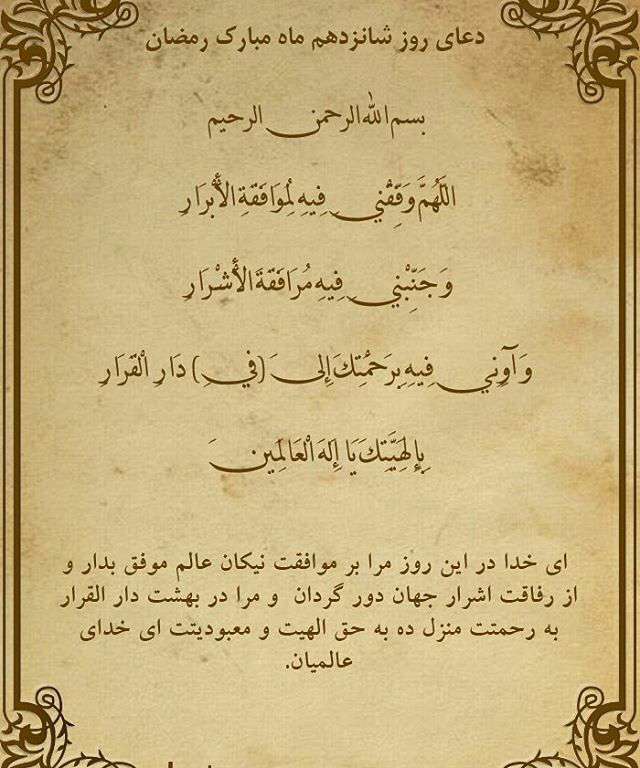 دعای روز شانزدهم ماه مبارک رمضان
بسم الله الرحمن الرحیم
اللَّهُمَّ وَفِّقْنِي فِيهِ لِمُوَافَقَةِ الْأَبْرَارِ
وَ جَنِّبْنِي فِيهِ مُرَافَقَةَ الْأَشْرَارِ
وَ آوِنِي فِيهِ بِرَحْمَتِكَ إِلَى (فِي) دَارِ الْقَرَارِ
بِإِلَهِيَّتِكَ يَا إِلَهَ الْعَالَمِينَ
ای خدا در این روز مرا بر موافقت نیکان عالم موفق بدار و
از رفاقت اشرار جهان دور گردان و مرا در بهشت دار القرار
به رحمتت منزل ده به حق الهیت و معبودیتت ای خدای
عالمیان.